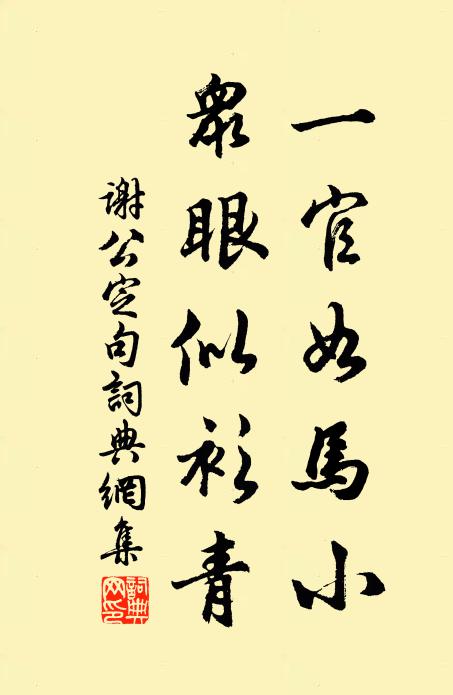 一官如馬小
眾眼似衫青
謝公定句詞典網集
詞典網印